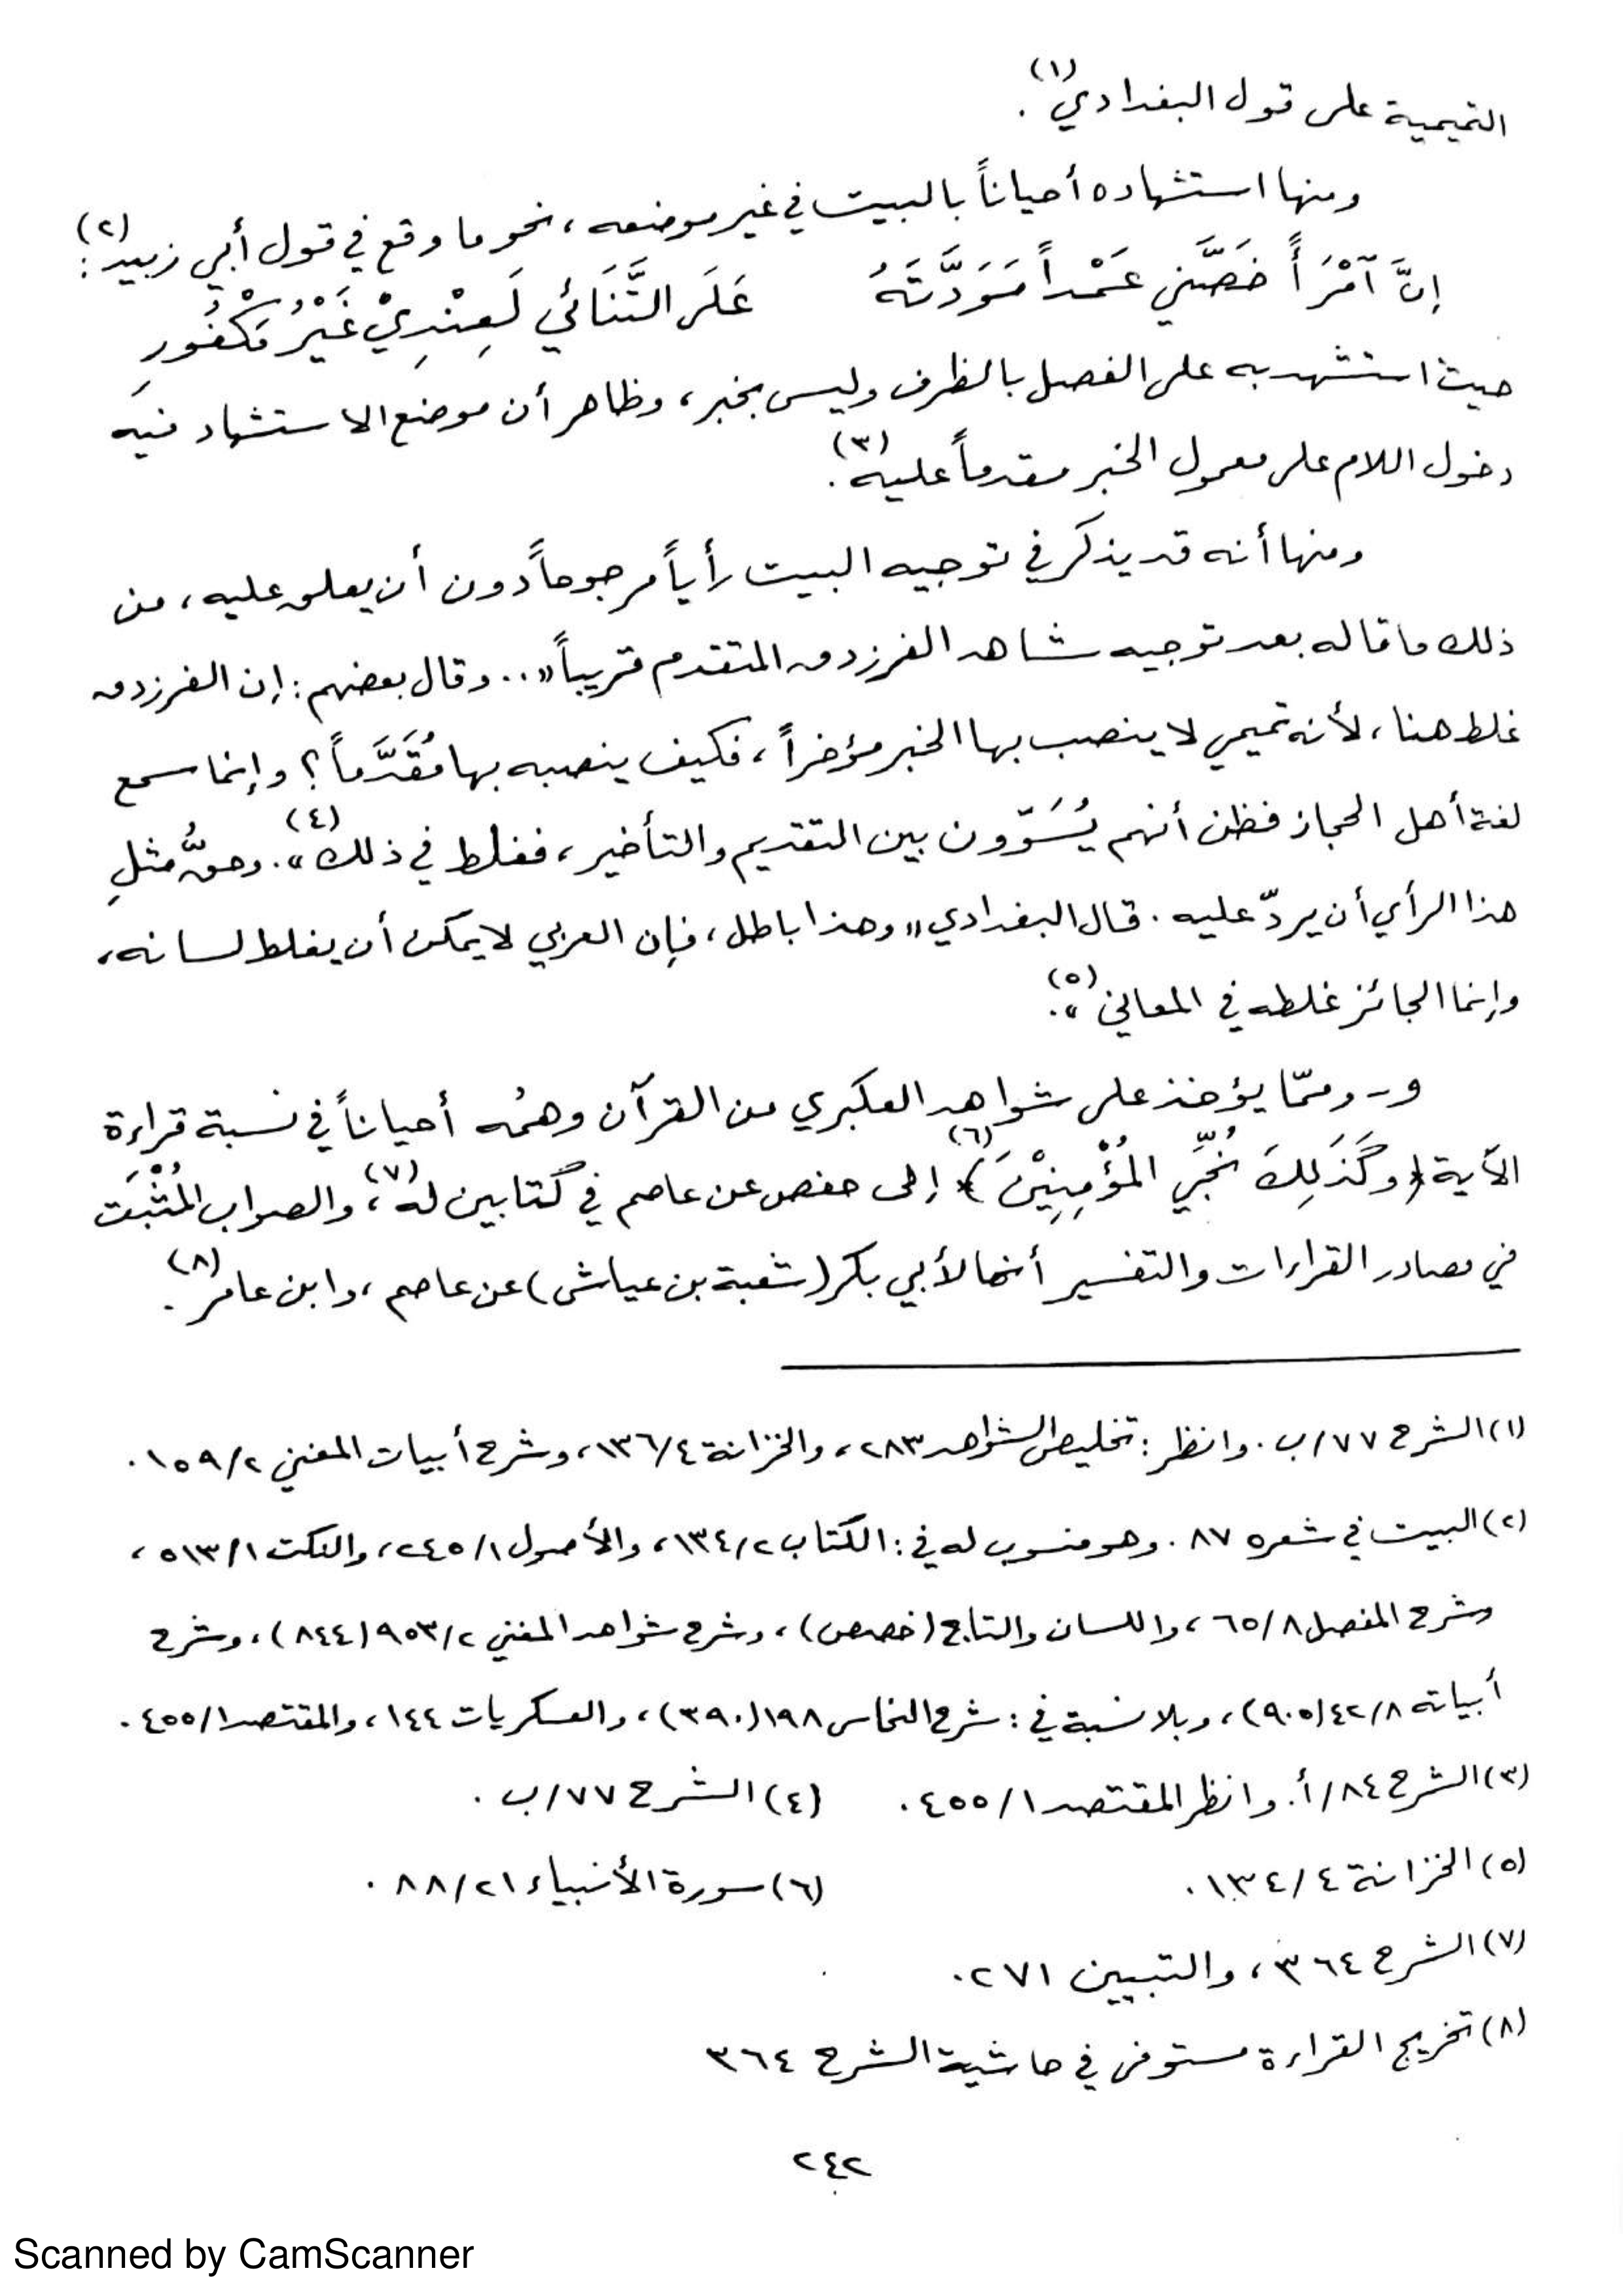 التميمية على قول البغدادي(١).
ومنها استشهاده أحياناً بالبيت في غير موضعه، نحو ما وقع في قول أبي زبيد(٢):
إنَّ آمْرَأً خَصَّني عَمْداً مَوَدَّتَهُ عَلَى التَّنَائي لَعِنْدِيْ غَيْرُ مَكْفُورِ
حيث استشهد به على الفصل بالظرف وليس بخبر، وظاهر أن موضع الاستشهاد فيه
دخول اللام على معمول الخبر مقدماً عليه(٣).
ومنها أنه قد يذكر في توجيه البيت رأياً مرجوحاً دون أن يعلق عليه، من
ذلك ما قاله بعد توجيه شاهد الفرزدق المتقدم قريباً «.. وقال بعضهم: إن الفرزدق
غلط هنا، لأنه تميمي لا ينصب بها الخبر مؤخراً، فكيف ينصبه بها مُقَدَّماً؟ وإنما سمع
لغة أهل الحجاز فظن أنهم يُسَوّون بين التقديم والتأخير، فغلط في ذلك»(٤). وحقُّ مثلِ
هذا الرأي أن يردّ عليه. قال البغدادي «وهذا باطل، فإن العربي لا يمكن أن يغلط لسانه،
وإنما الجائز غلطه في المعاني»(٥).
و- وممّا يؤخذ على شواهد العكبري من القرآن وهمُه أحياناً في نسبة قراءة
الآية ﴿وكَذَلِكَ نُجِّي المُؤْمِنِيْنَ﴾(٦) إلى حفص عن عاصم في كتابين له(٧)، والصواب المُثْبَت
في مصادر القراءات والتفسير أنها لأبي بكر (شعبة بن عياش) عن عاصم، وابن عامر(٨).
(١) الشرح ٧٧/ب. وانظر: تخليص الشواهد ٢٨٣، والخزانة ١٣٦/٤، وشرح أبيات المغني ١٥٩/٢.
(٢) البيت في شعره ٨٧. وهو منسوب له في: الكتاب ١٣٤/٢، والأصول ٢٤٥/١، والنكت ٥١٣/١،
وشرح المفصل ٦٥/٨، واللسان والتاج (خصص)، وشرح شواهد المغني ٩٥٣/٢ (٨٤٤)، وشرح
أبياته ٤٢/٨ (٩٠٥)، وبلا نسبة في: شرح النحاس ١٩٨ (٣٩٠)، والعسكريات ١٤٤، والمقتصد ٤٥٥/١.
(٣) الشرح ٨٤/أ. وانظر المقتصد ٤٥٥/١. (٤) الشرح ٧٧/ب.
(٥) الخزانة ١٣٤/٤. (٦) سورة الأنبياء ٨٨/٢١.
(٧) الشرح ٣٦٤، والتبيين ٢٧١.
(٨) تخريج القراءة مستوفى في حاشية الشرح ٣٦٤
٢٤٢
Scanned by CamScanner